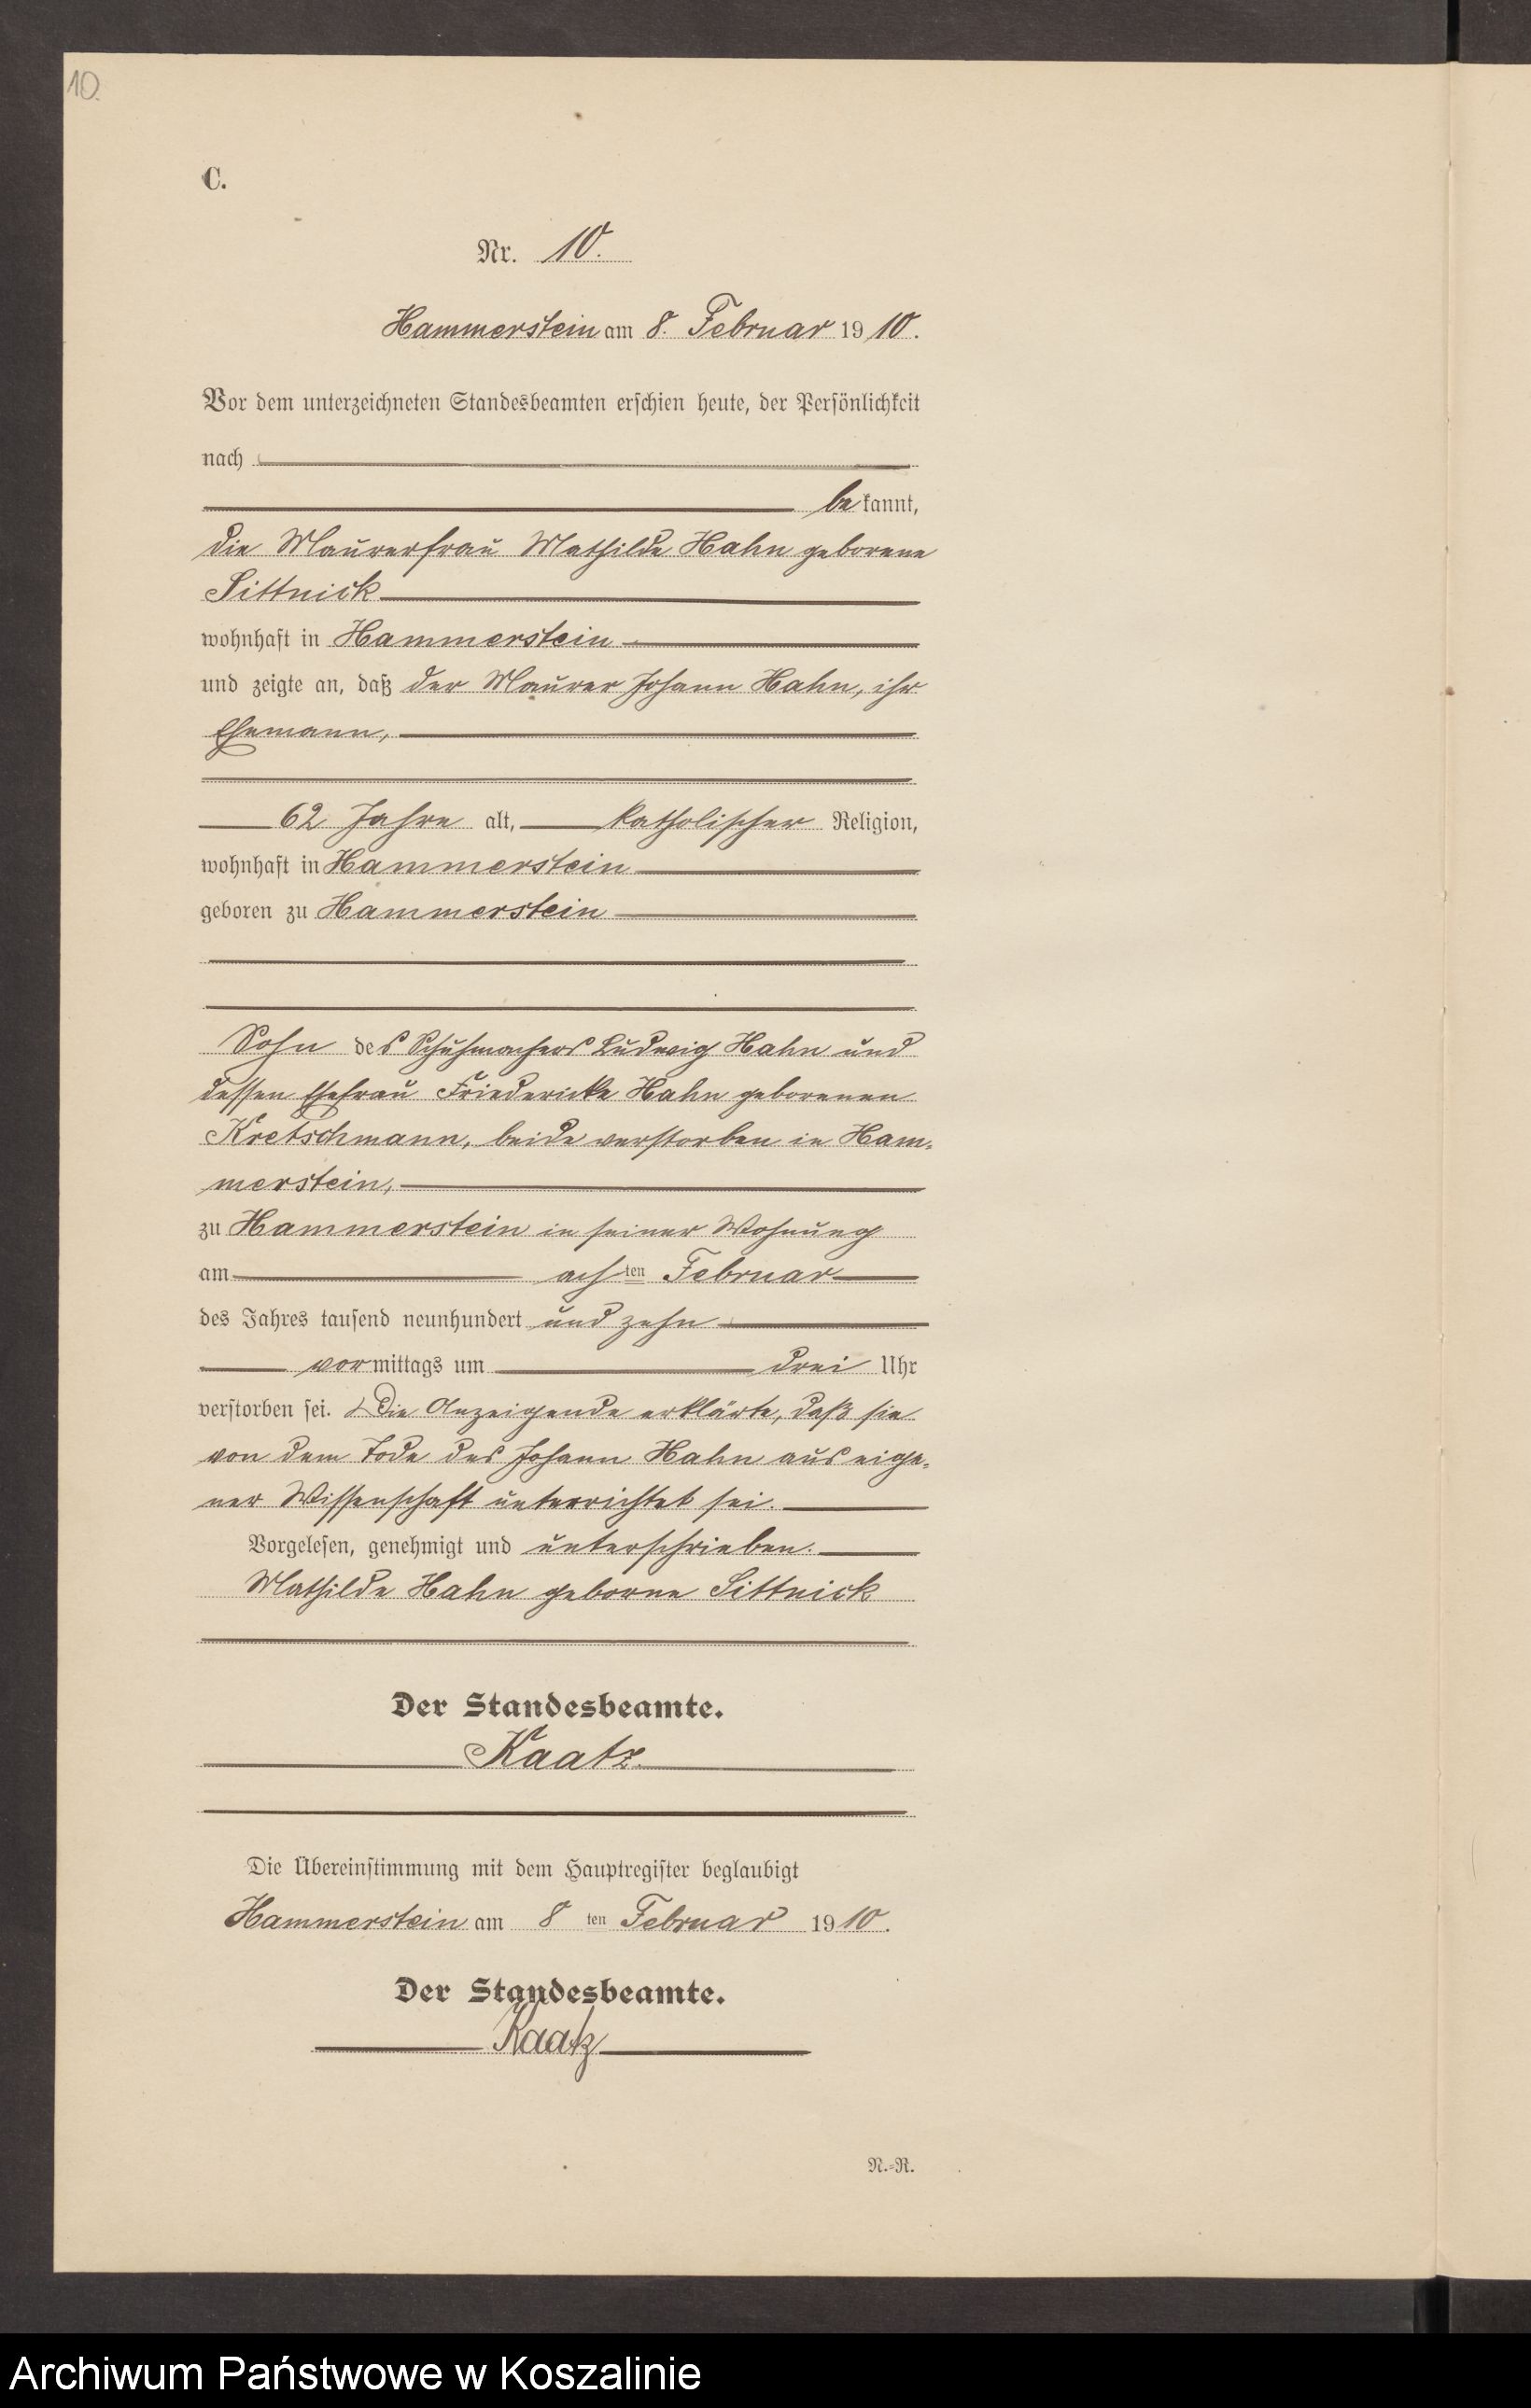 10.
C.
Nr. 10.
Hammerstein am 8. Februar 1910.
Vor dem unterzeichneten Standesbeamten erschien heute, der Persönlichkeit
nach
bekannt,
die Maurerfrau Mathilde Hahn geborene
Sittnick
wohnhaft in Hammerstein
und zeigte an, daß der Maurer Johann Hahn, ihr
Ehemann,
62 Jahre alt, katholischer Religion,
wohnhaft in Hammerstein
geboren zu Hammerstein
Sohn des Schuhmachers Ludwig Hahn und
dessen Ehefrau Friedericke Hahn geborenen
Kretschmann, beide verstorben in Ham-
merstein,
zu Hammerstein in seiner Wohnung
am achten Februar
des Jahres tausend neunhundert und zehn
vormittags um drei Uhr
verstorben sei. Die Anzeigende erklärte, daß sie
von dem Tode des Johann Hahn aus eige-
ner Wissenschaft unterrichtet sei.
Vorgelesen, genehmigt und unterschrieben.
Mathilde Hahn geborne Sittnick
Der Standesbeamte.
Kaatz.
Die Übereinstimmung mit dem Hauptregister beglaubigt
Hammerstein am 8ten Februar 1910.
Der Standesbeamte.
Kaatz
N.-R.
Archiwum Państwowe w Koszalinie